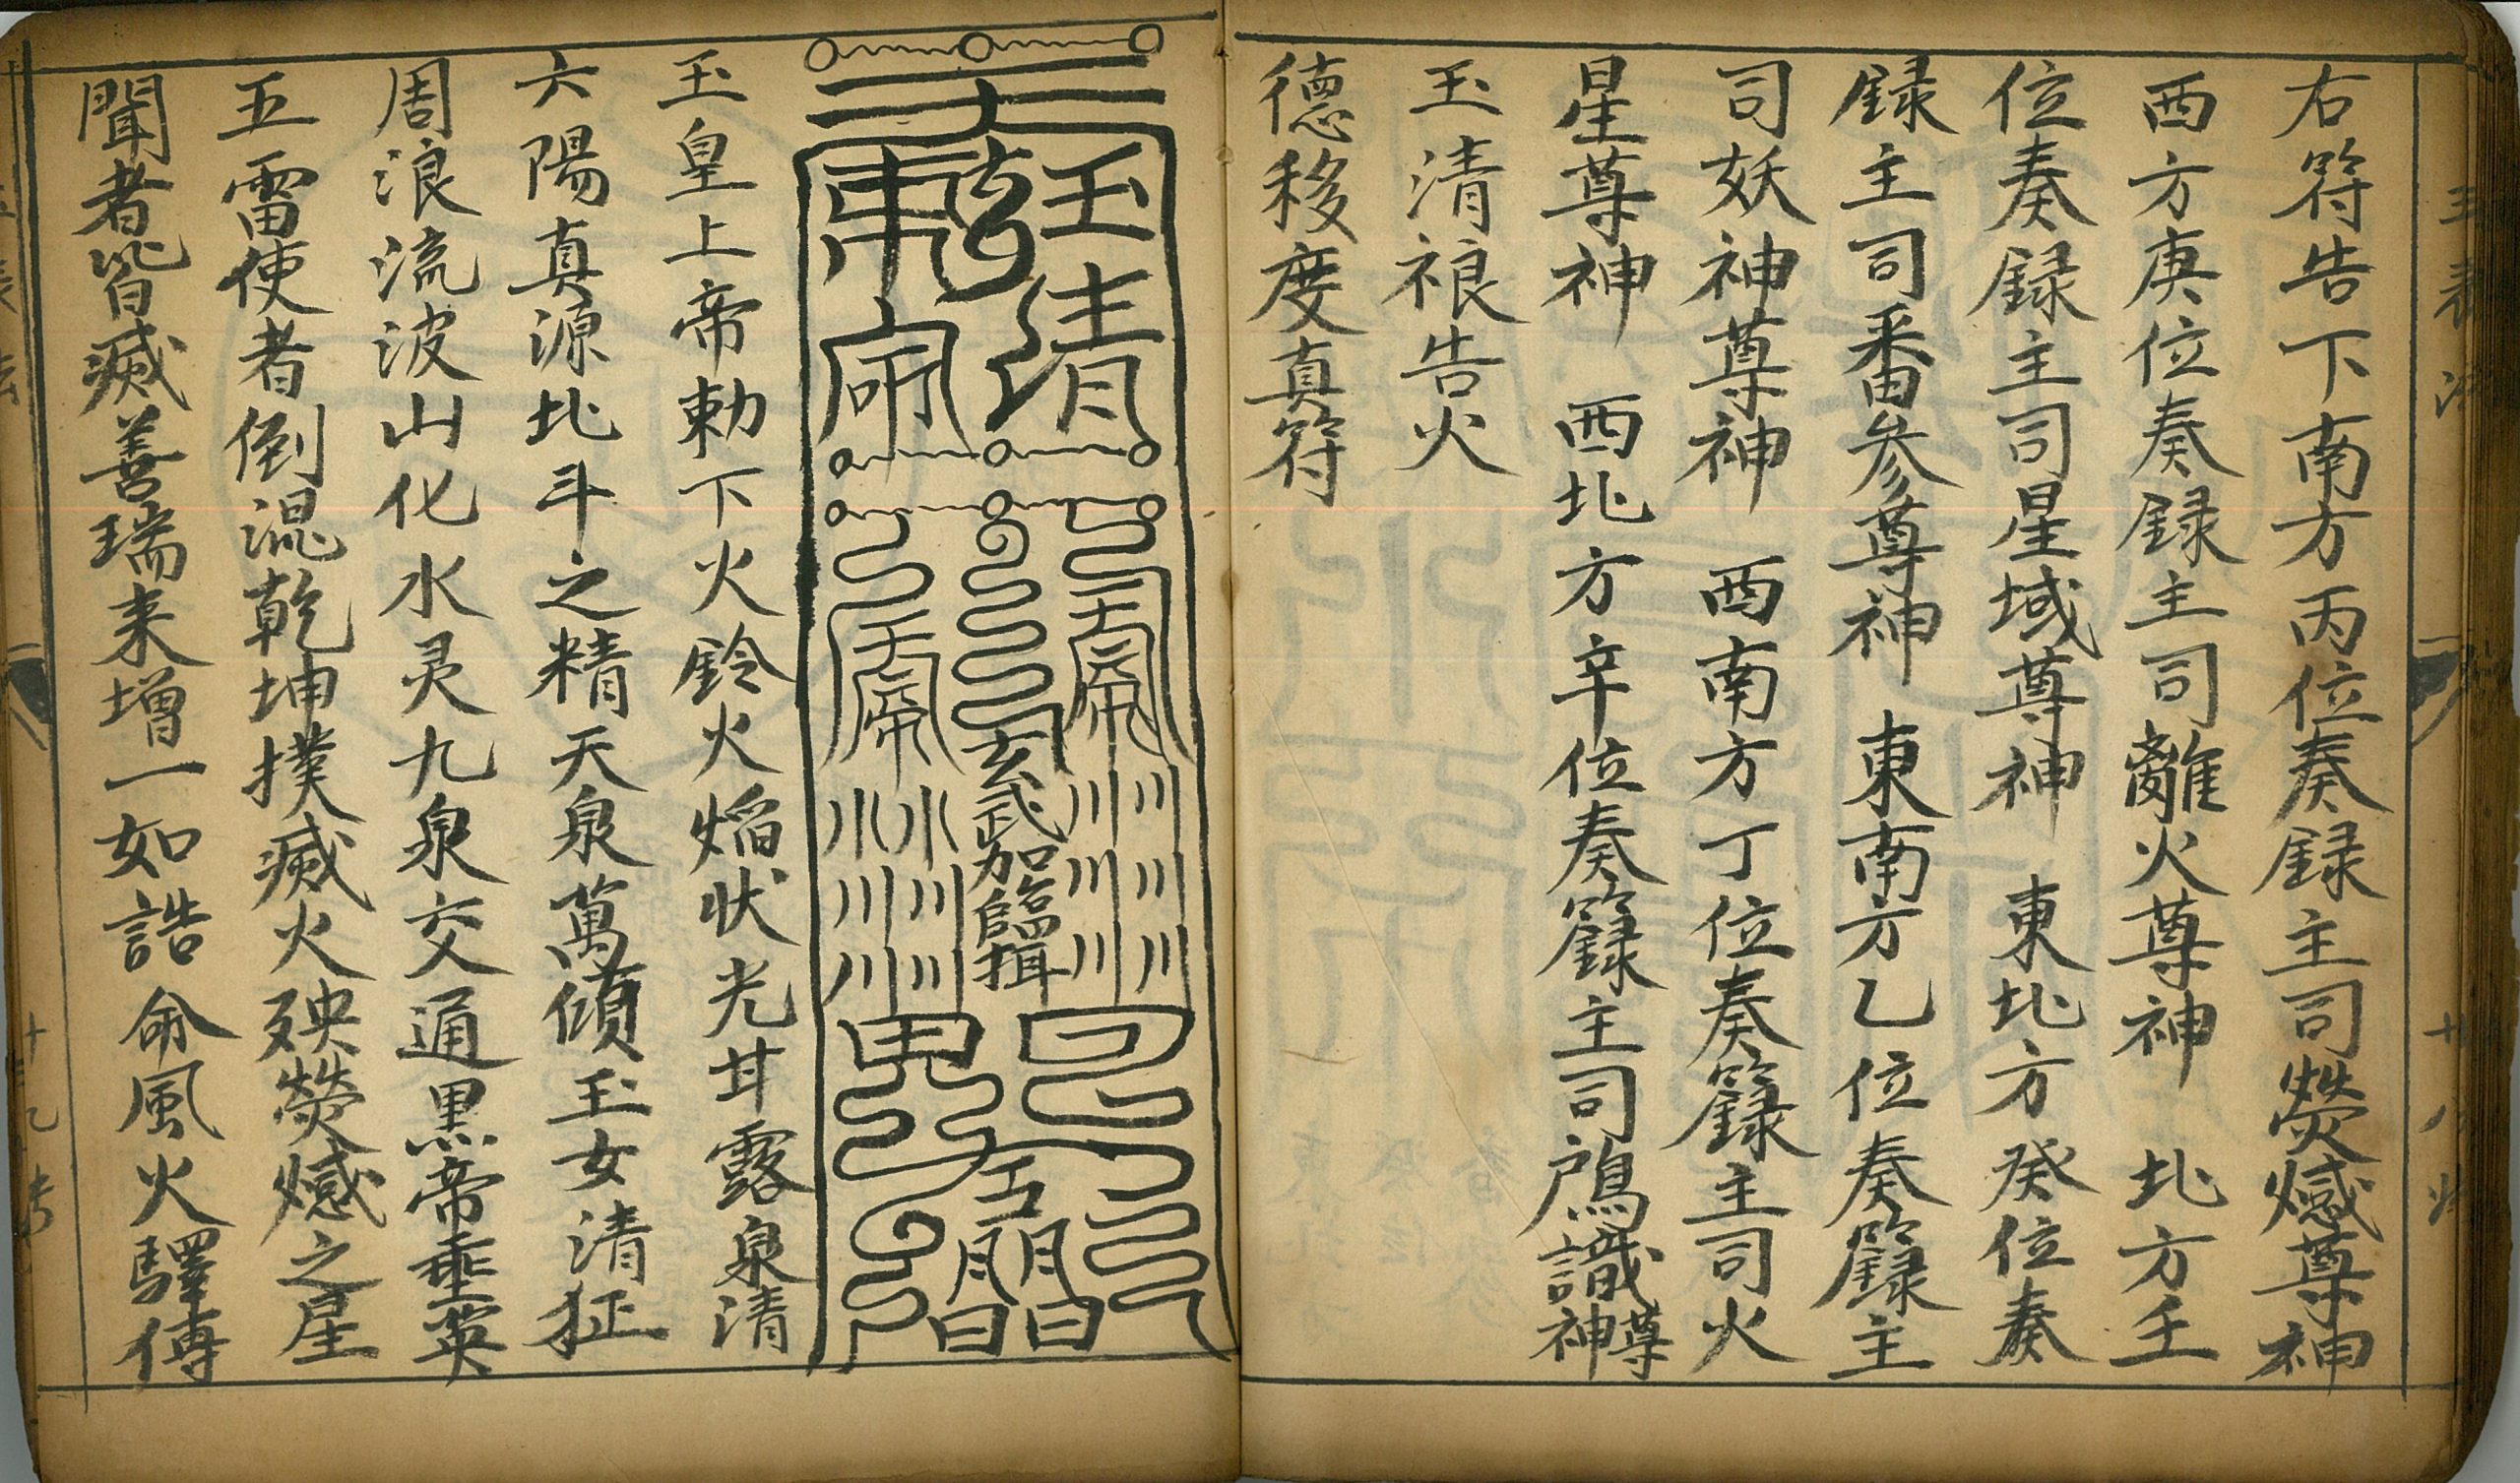 右符告下南方丙位奏録主司熒㷎尊神
西方庚位奏録主司離火尊神 北方壬
位奏録主司星域尊神 東北方癸位奏
録主司番參尊神 東南方乙位奏籙主
司妖神尊神 西南方丁位奏籙主司火
星尊神 西北方辛位奏籙主司 識尊神
玉清禓告火
德移度真符
玉清
乾
東
玄武加臨揖
玉皇上帝勅下火鈴火焰狀光甘露泉清
六陽真源北斗之精天泉萬傾玉女清征
周浪流波山化水灵九泉交通黒帝垂英
五雷使者倒混乾坤撲滅火殃熒㷎之星
聞者皆滅善瑞来增一如誥命風火驛傳